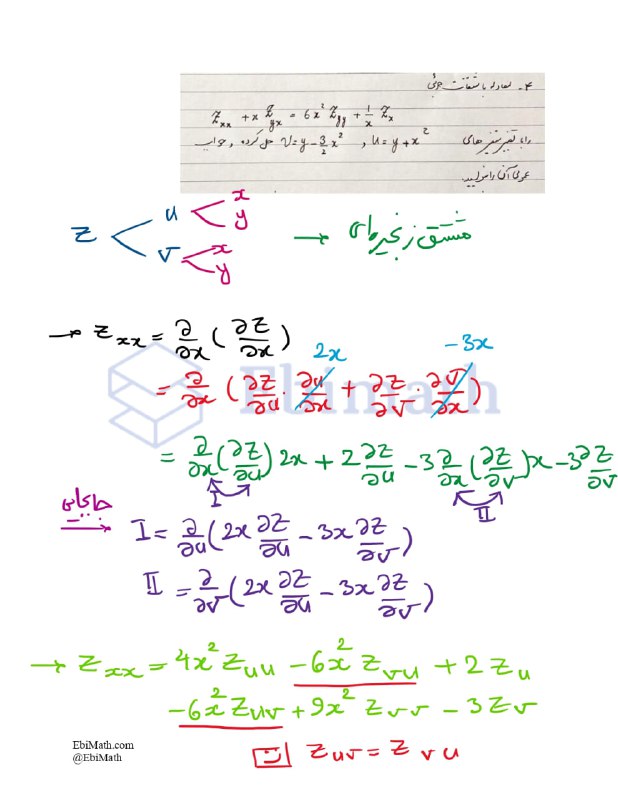 ۴- معادله با مشتقات جزئی
Z_xx + x Z_yx = 6x² Z_yy + 1/x Z_x
را با تغییر متغیرهای u = y + x² , v = y - 3/2 x² حل کرده و جواب
عمومی آن را بنویسید.
Z u x y
v x y
→ مشتق زنجیره‌ای
→ Z_xx = ∂/∂x (∂Z/∂x)
2x -3x
= ∂/∂x (∂Z/∂u · ∂u/∂x + ∂Z/∂v · ∂v/∂x)
EbiMath
= ∂/∂x (∂Z/∂u) 2x + 2 ∂Z/∂u - 3 ∂/∂x (∂Z/∂v) x - 3 ∂Z/∂v
I II
جابجایی → I = ∂/∂u (2x ∂Z/∂u - 3x ∂Z/∂v)
II = ∂/∂v (2x ∂Z/∂u - 3x ∂Z/∂v)
→ Z_xx = 4x² Z_uu - 6x² Z_vu + 2 Z_u
- 6x² Z_uv + 9x² Z_vv - 3 Z_v
EbiMath.com
@EbiMath
Z_uv = Z_vu